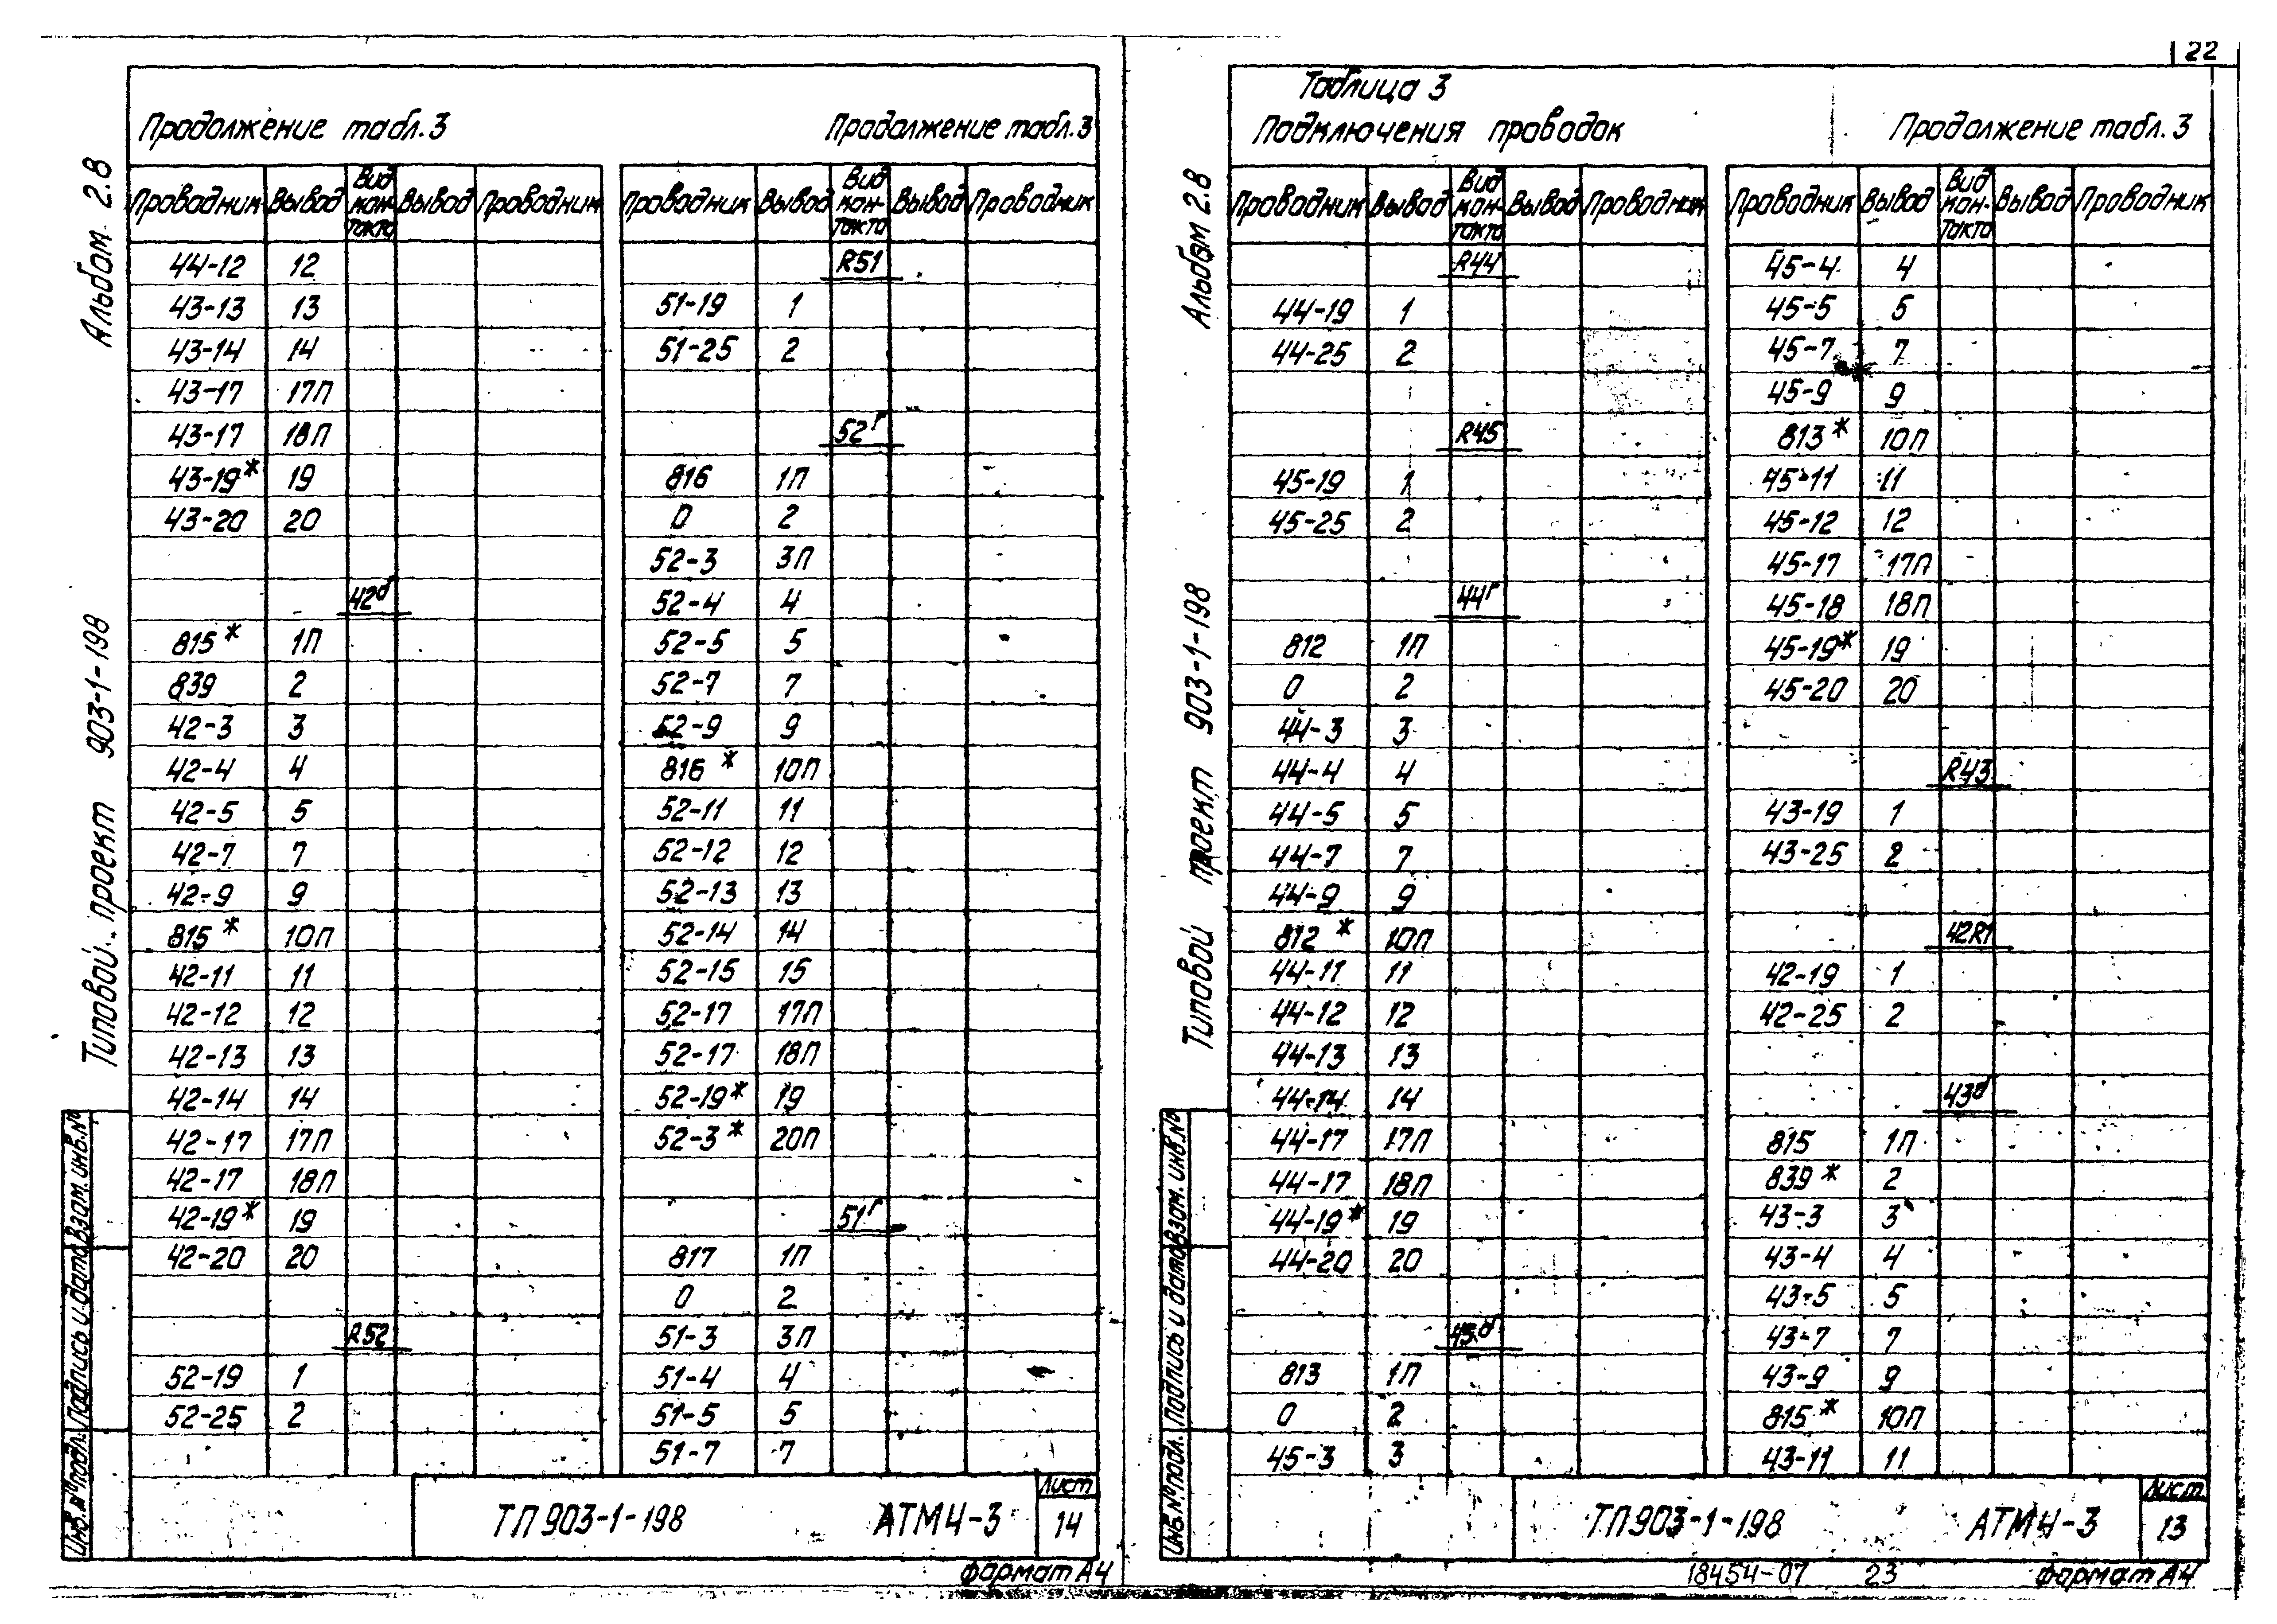 22
Альбом 2.8
Типовой проект 903-1-198
Взам. инв.№
Подпись и дата
Инв.№подл.
Продолжение табл.3
Проводник Вывод Вид кон- такта Вывод Проводник
44-12 12
43-13 13
43-14 14
43-17 17П
43-17 18П
43-19* 19
43-20 20
42б
815* 1П
839 2
42-3 3
42-4 4
42-5 5
42-7 7
42-9 9
815* 10П
42-11 11
42-12 12
42-13 13
42-14 14
42-17 17П
42-17 18П
42-19* 19
42-20 20
R52
52-19 1
52-25 2
Продолжение табл.3
Проводник Вывод Вид кон- такта Вывод Проводник
R51
51-19 1
51-25 2
52г
816 1П
0 2
52-3 3П
52-4 4
52-5 5
52-7 7
52-9 9
816* 10П
52-11 11
52-12 12
52-13 13
52-14 14
52-15 15
52-17 17П
52-17 18П
52-19* 19
52-3* 20П
51г
817 1П
0 2
51-3 3П
51-4 4
51-5 5
51-7 7
ТП903-1-198 АТМ4-3
Лист
14
формат А4
Альбом 2.8
Типовой проект 903-1-198
Взам. инв.№
Подпись и дата
Инв.№подл.
Таблица 3
Подключения проводок
Проводник Вывод Вид кон- такта Вывод Проводник
R44
44-19 1
44-25 2
R45
45-19 1
45-25 2
44г
812 1П
0 2
44-3 3
44-4 4
44-5 5
44-7 7
44-9 9
812* 10П
44-11 11
44-12 12
44-13 13
44-14 14
44-17 17П
44-17 18П
44-19* 19
44-20 20
45б
813 1П
0 2
45-3 3
Продолжение табл.3
Проводник Вывод Вид кон- такта Вывод Проводник
45-4 4
45-5 5
45-7 7
45-9 9
813* 10П
45-11 11
45-12 12
45-17 17П
45-18 18П
45-19* 19
45-20 20
R43
43-19 1
43-25 2
42R1
42-19 1
42-25 2
43б
815 1П
839* 2
43-3 3
43-4 4
43-5 5
43-7 7
43-9 9
815* 10П
43-11 11
ТП903-1-198 АТМ4-3
Лист
13
18454-07 23 формат А4